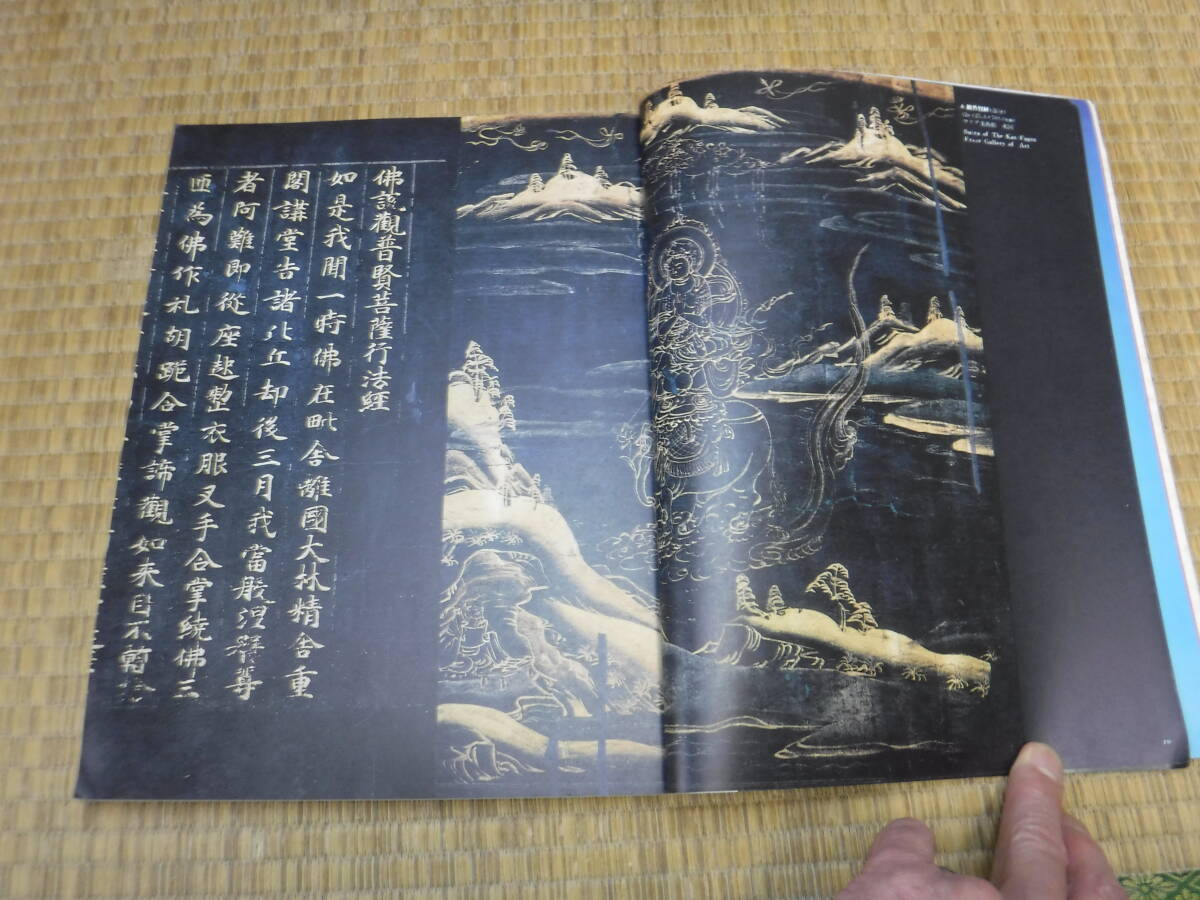 佛說觀普賢菩薩行法經
如是我聞一時佛在毗舍離國大林精舍重
閣講堂告諸比丘却後三月我當般涅槃尊
者阿難即從座起整衣服叉手合掌繞佛三
匝為佛作礼胡跪合掌諦觀如来目不暫捨
Sutra of The Kan-Fugen
Freer Gallery of Art